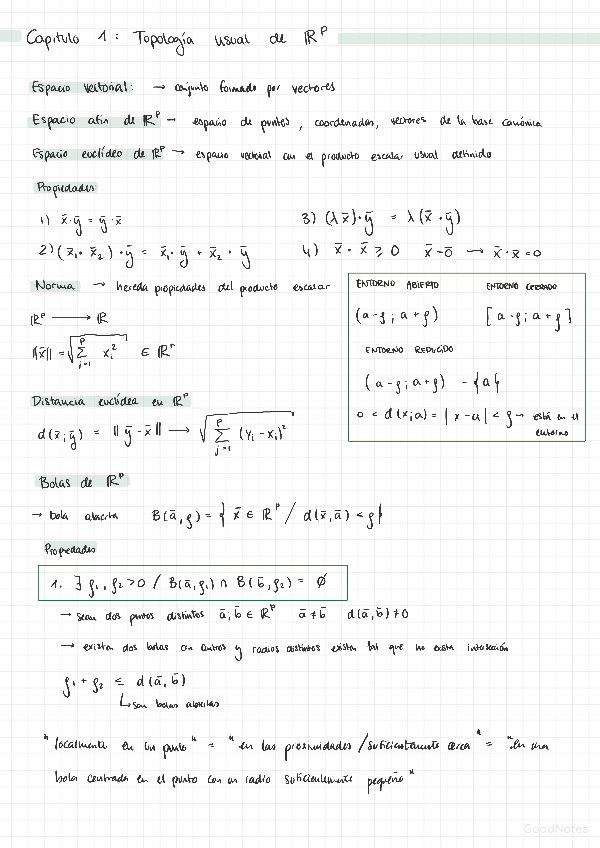 Capitulo 1: Topología usual de ℝᵖ
Espacio vectorial: → conjunto formado por vectores
Espacio afín de ℝᵖ → espacio de puntos, coordenadas, vectores de la base canónica
Espacio euclídeo de ℝᵖ → espacio vectorial con el producto escalar usual definido
Propiedades:
1) x̄·ȳ = ȳ·x̄
3) (λ x̄)·ȳ = λ(x̄·ȳ)
2) (x̄₁· x̄₂)·ȳ = x̄₁·ȳ + x̄₂·ȳ
4) x̄·x̄ ⩾ 0 x̄=0̄ → x̄·x̄ = 0
Norma → hereda propiedades del producto escalar
ℝᵖ ⟶ ℝ
‖x̄‖ = √(∑ᵢ₌₁ᵖ xᵢ²) ∈ ℝᵖ
ENTORNO ABIERTO
ENTORNO CERRADO
(a-ρ; a+ρ)
[a-ρ; a+ρ]
ENTORNO REDUCIDO
(a-ρ; a+ρ) - {a}
0 < d(x;a) = |x-a| < ρ → está en el
entorno
Distancia euclídea en ℝᵖ
d(x̄;ȳ) = ‖ȳ-x̄‖ ⟶ √(∑ⱼ₌₁ᵖ (yᵢ-xᵢ)²)
Bolas de ℝᵖ
→ bola abierta B(ā,ρ) = { x̄ ∈ ℝᵖ / d(x̄,ā) < ρ}
Propiedades
1. ∃ ρ₁, ρ₂ > 0 / B(ā,ρ₁) ∩ B(b̄,ρ₂) = ∅
→ sean dos puntos distintos ā; b̄ ∈ ℝᵖ ā ≠ b̄ d(ā,b̄) ≠ 0
→ existen dos bolas con centros y radios distintos existen tal que no exista intersección
ρ₁ + ρ₂ ≤ d(ā,b̄)
↳ son bolas abiertas
"localmente en un punto" = "en las proximidades / suficientemente cerca" = "en una
bola centrada en el punto con un radio suficientemente pequeño"
GoodNotes